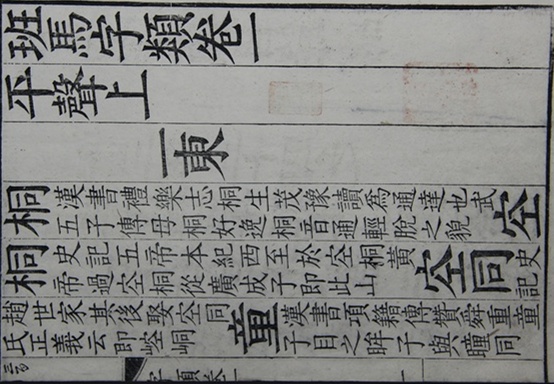 班馬字類卷一
平聲上
一東
桐漢書禮樂志桐生茂豫讀為通達也武
五子傳毋桐好逸桐音通輕脫之貌空
桐史記五帝本紀西至於空桐黃
帝過空桐從廣成子即此山空同史
記
趙世家其後娶空同
氏正義云即崆峒童漢書項籍傳贊舜重童
子目之眸子與瞳同
字類卷一